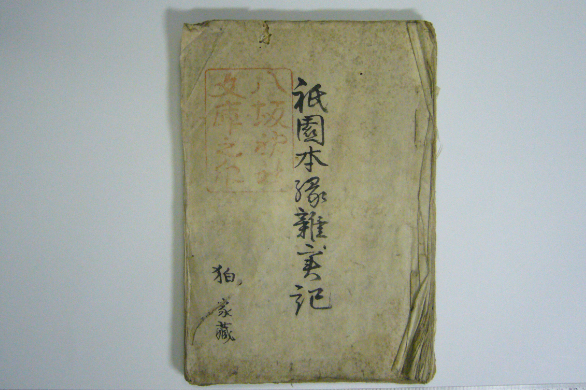 八坂神社
文庫之印
祇園本縁雜実記
狛家蔵